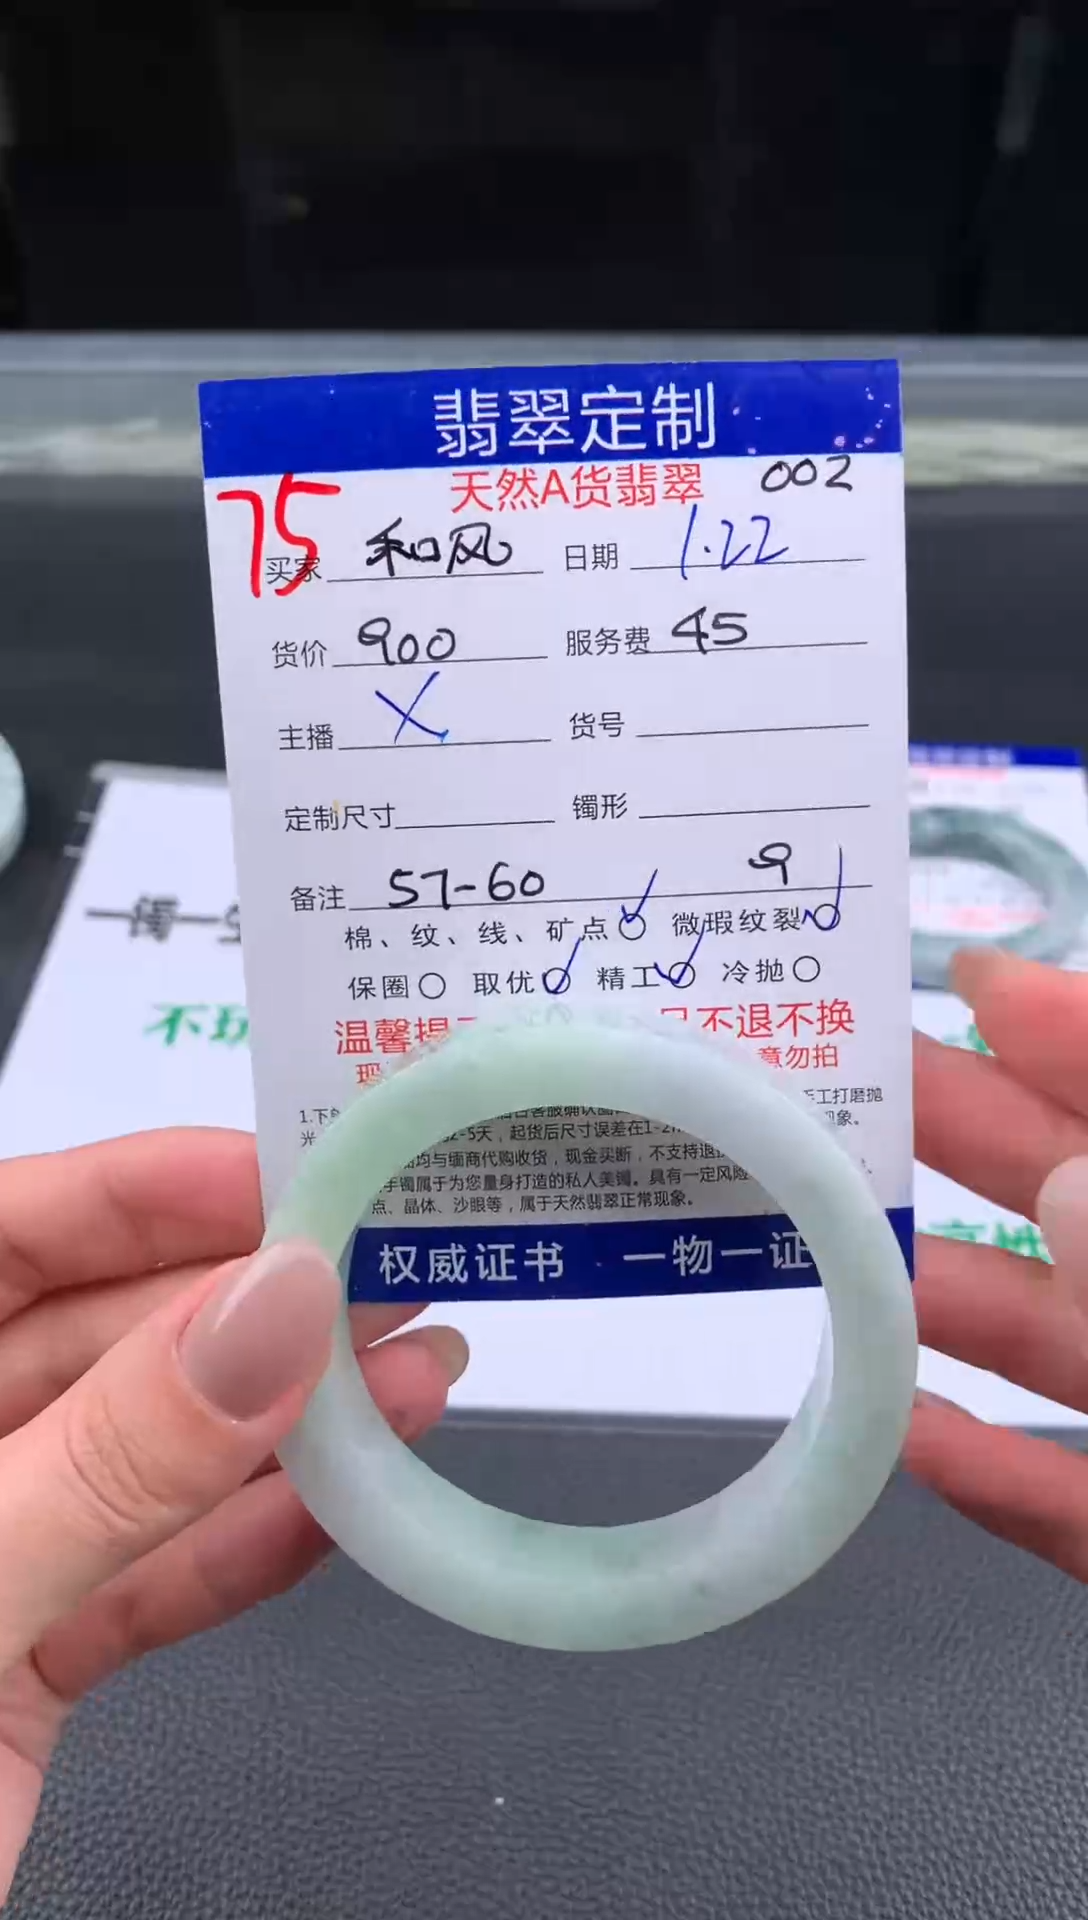 翡翠定制
天然A货翡翠 002
75
买家 和风 日期 1.22
货价 900 服务费 45
主播 X 货号
定制尺寸 镯形
备注 57-60 9
棉、纹、线、矿点 微瑕纹裂
保圈 取优 精工 冷抛
温馨提 不退不换
意勿拍
1.下 手工打磨抛
光 2-5天，起货后尺寸误差在1-2 现象。
均与缅商代购收货，现金买断，不支持退
手镯属于为您量身打造的私人美镯。具有一定风险
点、晶体、沙眼等，属于天然翡翠正常现象。
权威证书 一物一证
不玩